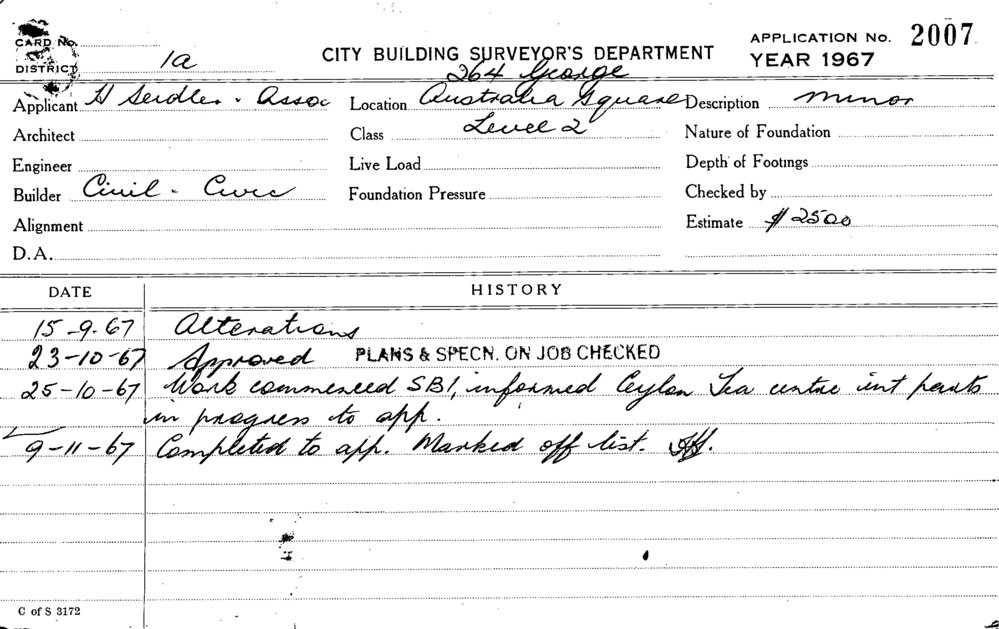 CARD No.
DISTRICT 1a
CITY BUILDING SURVEYOR'S DEPARTMENT
APPLICATION No. 2007
YEAR 1967
264 George
Applicant H Seidler . Assoc Location Australia Square Description minor
Architect Class Level 2 Nature of Foundation
Engineer Live Load Depth of Footings
Builder Civil . Civic Foundation Pressure Checked by
Alignment Estimate $2500
D.A.
DATE HISTORY
15-9-67 Alterations
23-10-67 Approved PLANS & SPECN. ON JOB CHECKED
25-10-67 Work commenced SB1, informed Ceylon Tea centre int
in progress to app.
9-11-67 Completed to app. Marked off list.
C of S 3172